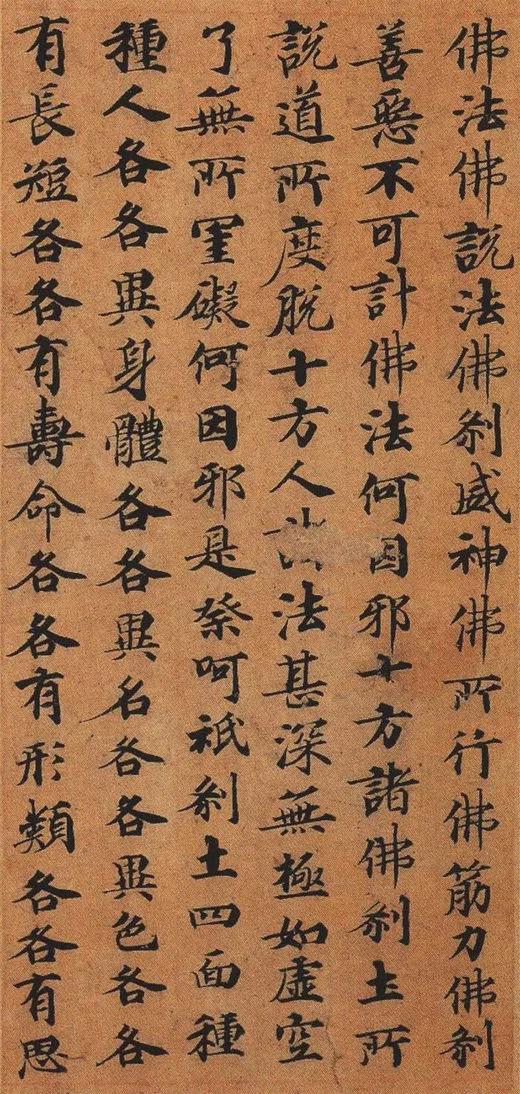 佛法佛說法佛刹威神佛所行佛筋力佛刹
善惡不可計佛法何因邪十方諸佛刹土所
說道所度脫十方人法甚深無極如虛空
了無所罣礙何因邪是呵祇刹土四面種
種人各各異身體各各異名各各異色各各
有長短各各有壽命各各有形類各各有思